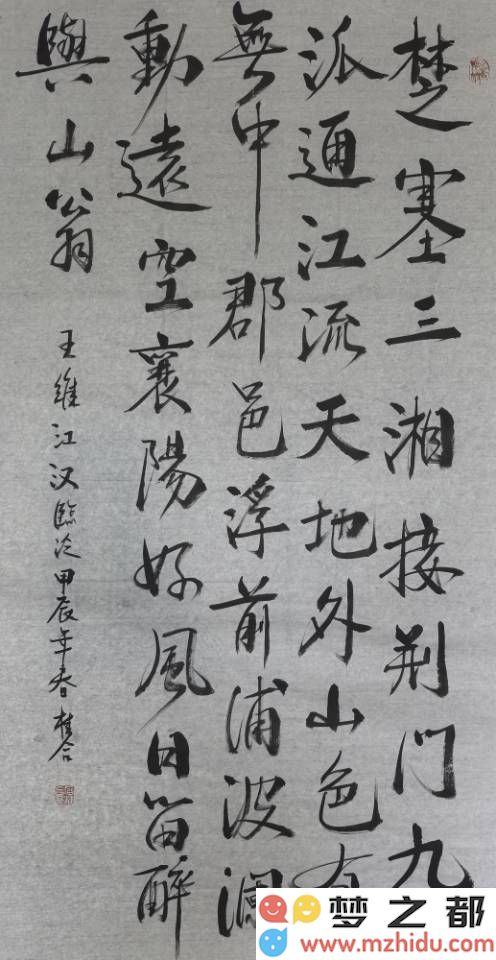 楚塞三湘接荆门九
派通江流天地外山色有
無中郡邑浮前浦波瀾
動遠空襄陽好風日留醉
與山翁
王維江汉臨泛甲辰年春
梦之都
www.mzhidu.com